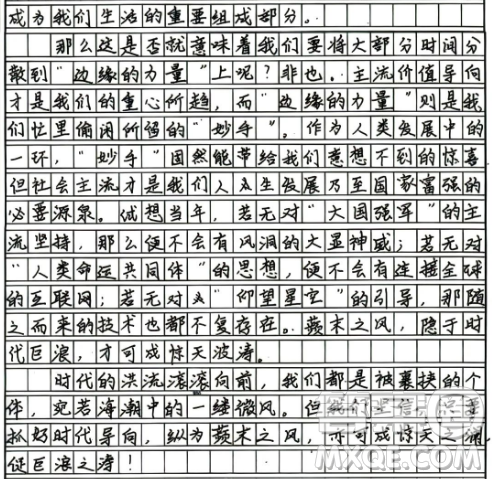 成为我们生活的重要组成部分。
那么这是否就意味着我们要将大部分时间分
散到“边缘的力量”上呢？非也。主流价值导向
才是我们的重心所趋，而“边缘的力量”则是我
们忙里偷闲所留的“妙手”。作为人类发展中的
一环，“妙手”固然能带给我们意想不到的惊喜
但社会主流才是我们人生发展乃至国家富强的
必要源泉。试想当年，若无对“大国强军”的主
流坚持，那么便不会有风洞的大显神威；若无对
“人类命运共同体”的思想，便不会有连接全球
的互联网；若无对“仰望星空”的引导，那随
之而来的技术也都不复存在。蘋末之风，隐于时
代巨浪，才可成惊天波涛。
时代的洪流滚滚向前，我们都是被裹挟的个
体，宛若海潮中的一缕微风。但我们坚信
抓好时代导向，纵为蘋末之风，亦可成惊天之涌，
促巨浪之涛！
MXQE.COM